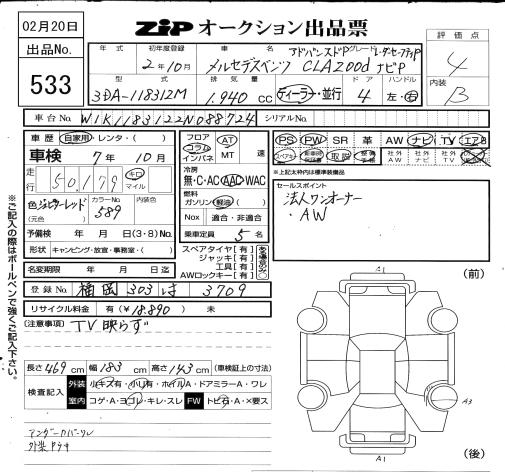 02月20日
ZIP オークション出品票
出品No. 533
年式 初年度登録 車名 グレード 評価点
2年10月 メルセデスベンツ CLA200d アドバンスドP レーダーセーフティP ナビP 4
型式 排気量 ドア ハンドル 内装
3DA-118312M 1.940 cc ディーラー・並行 4 左・右 B
車台No. W1K1183122N088724 シリアルNo.
車歴 自家用・レンタ・( )
車検 7年10月
走行 50,179 キロ マイル
色 ジュピターレッド (元色) カラーNo. 589 内装色
予備検 年 月 日 (3・8) No.
形状 キャンピング・放宣・事務室・( )
名変期限 年 月 日迄
フロア コラム インパネ AT MT 速
冷房 無・C・AC AAC・WAC
燃料 ガソリン 軽油 ( )
Nox 適合・非適合
乗車定員 5 名
スペアタイヤ [有]
ジャッキ [有]
工具 [有]
AWロックキー [有]
PS PW SR 革 AW ナビ TV エアB
スペアキー 取説 社外AW 社外ナビ 社外TV
*上記太枠内は標準装備品
セールスポイント
法人ワンオーナー
・AW
登録No. 福岡 303 は 3709
リサイクル料金 有(¥18.890) 未
(注意事項) TV映らず
長さ 469 cm 幅 183 cm 高さ 143 cm (車検証上の寸法)
検査記入 外装 小キズ有・小凹有・ホイルA・ドアミラーA・ワレ
室内 コゲ・A・ヨゴレ・キレ・スレ FW トビ石・A・×要ス
アンダーカバーワレ
※ご記入の際はボールペンで強くご記入下さい。
A1
(前)
A3
A1
(後)